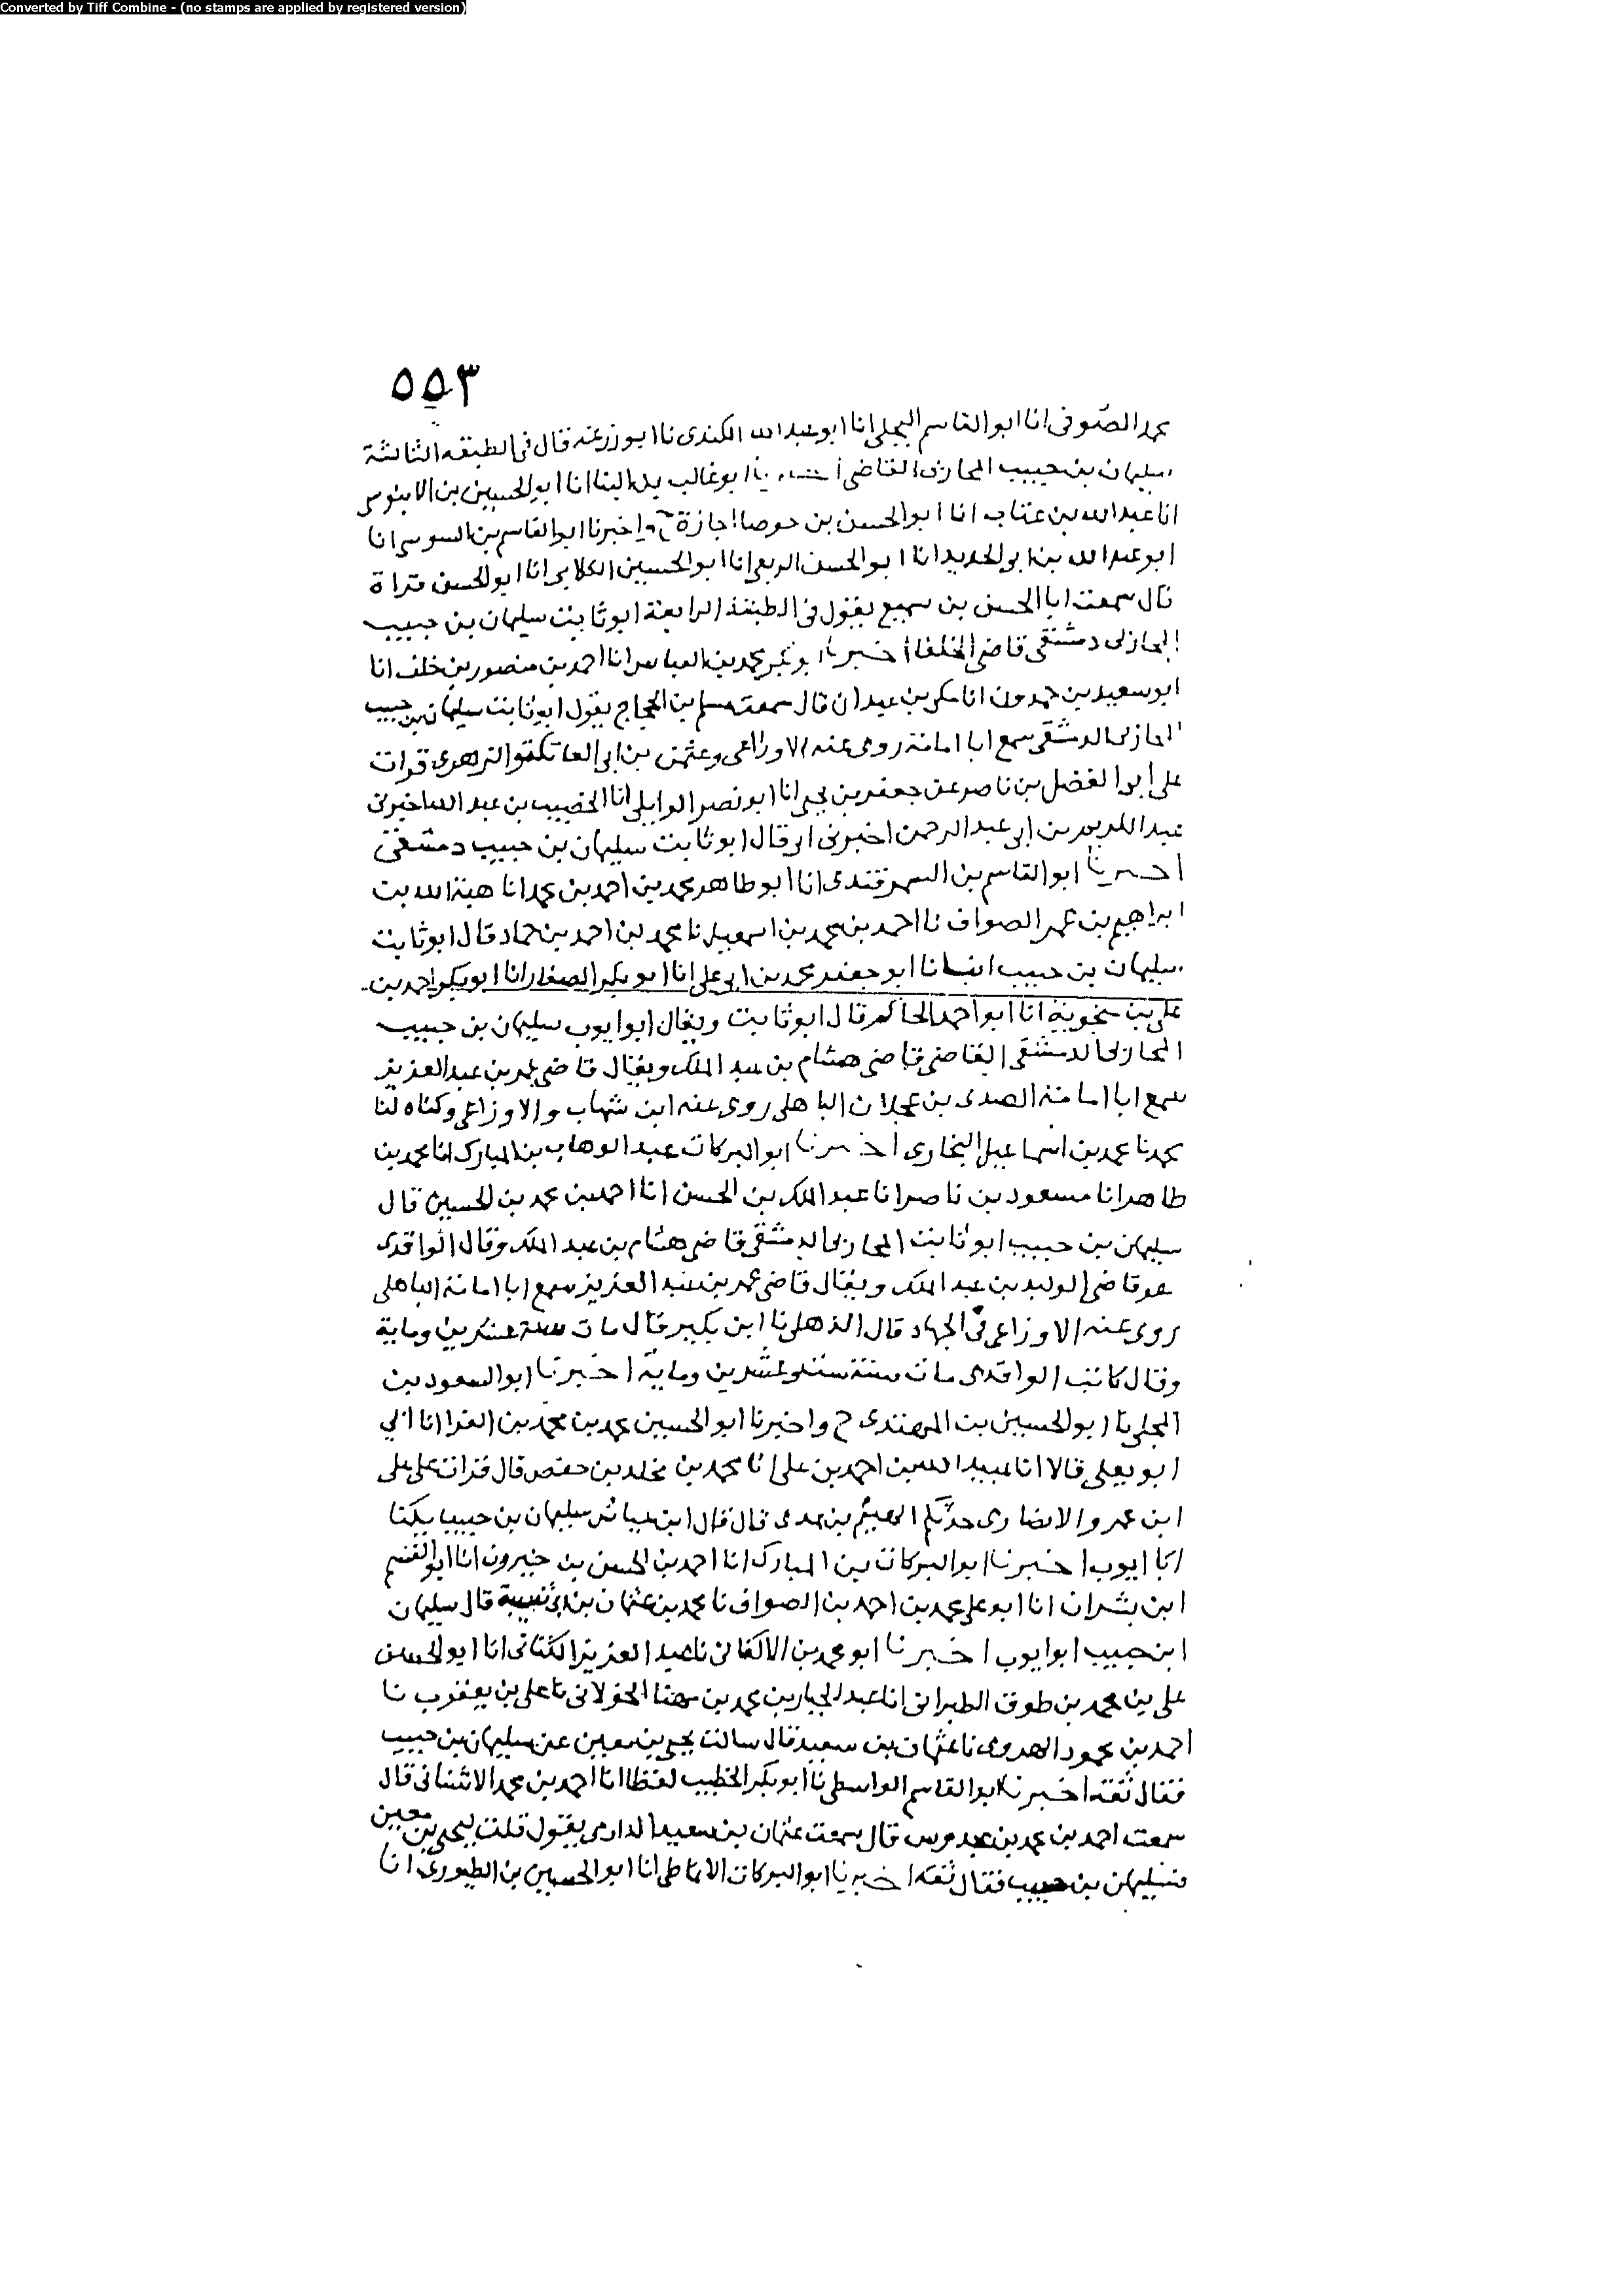 Converted by Tiff Combine - (no stamps are applied by registered version)
٥٥٣
محمد الصوفى انا ابو القاسم البجلى انا ابو عبد الله الكندى نا ابو زرعة قال فى الطبقة الثالثة
سليمان بن حبيب المحاربى القاضى ابو غالب بن البنا انا ابو الحسين بن الابنوسى
انا عبد الله بن عتاب انا ابو الحسن بن جوصا اجازة ح واخبرنا ابو القاسم بن السوسى انا
ابو عبد الله بن ابى الحديد انا ابو الحسن الربعى انا ابو الحسين الكلابى انا ابو الحسن قراة
قال سمعت ابا الحسن بن سميع يقول فى الطبقة الرابعة ابو ثابت سليمان بن حبيب
المحاربى دمشقى قاضى الخلفا اخبرنا ابو بكر محمد بن العباس انا احمد بن منصور بن خلف انا
ابو سعيد بن حمدون انا مكى بن عبدان قال سمعت مسلم بن الحجاج يقول ابو ثابت سليمان بن حبيب
المحاربى الدمشقى سمع ابا امامة روى عنه الاوزاعى وعثمن بن ابى العاتكة والزهرى قرات
على ابو الفضل بن ناصر عن جعفر بن يحيى انا ابو نصر الوايلى انا الخصيب بن عبد الله اخبرنى
عبد الكريم بن ابى عبد الرحمن اخبرنى ابى قال ابو ثابت سليمان بن حبيب دمشقى
اخبرنا ابو القاسم بن السمرقندى انا ابو طاهر محمد بن احمد بن محمد انا هبة الله بن
ابراهيم بن عمر الصواف نا احمد بن محمد بن اسمعيل نا محمد بن احمد بن حماد قال ابو ثابت
سليمان بن حبيب انبانا ابو جعفر محمد بن ابى على انا ابو بكر الصفار انا ابو بكر احمد بن
على بن منجوية انا ابو احمد الحاكم قال ابو ثابت ويقال ابو ايوب سليمان بن حبيب
المحاربى الدمشقى القاضى قاضى هشام بن عبد الملك ويقال قاضى عمر بن عبد العزيز
سمع ابا امامة الصدى بن عجلان الباهلى روى عنه ابن شهاب والاوزاعى وكناه لنا
محمد نا محمد بن اسماعيل البخارى اخبرنا ابو البركات عبد الوهاب بن المبارك انا محمد بن
طاهر انا مسعود بن ناصر انا عبد الملك بن الحسن انا احمد بن محمد بن الحسين قال
سليمان بن حبيب ابو ثابت المحاربى الدمشقى قاضى هشام بن عبد الملك وقال الواقدى
هو قاضى الوليد بن عبد الملك ويقال قاضى عمر بن عبد العزيز سمع ابا امامة الباهلى
روى عنه الاوزاعى فى الجهاد قال الذهلى نا ابن بكير قال مات سنة عشرين وماية
وقال كاتب الواقدى مات سنة ست وعشرين وماية اخبرنا ابو السعود بن
المجلى نا ابو الحسين بن المهتدى ح واخبرنا ابو الحسين محمد بن محمد بن الفرا انا ابى
ابو يعلى قالا انا عبيد الله بن احمد بن على انا محمد بن مخلد بن حفص قال قرات على على
ابن عمرو الانصارى حدثكم الهيثم بن عدى قال قال ابن عياش سليمان بن حبيب يكنا
ابا ايوب اخبرنا ابو البركات بن المبارك انا احمد بن الحسن بن خيرون انا ابو القسم
ابن بشران انا ابو على محمد بن احمد بن الصواف نا محمد بن عثمان بن ابى شيبة قال سليمان
ابن حبيب ابو ايوب اخبرنا ابو محمد بن الاكفانى نا عبد العزيز الكتانى انا ابو الحسن
على بن محمد بن طوق الطبرانى انا عبد الجبار بن محمد بن مهنا الخولانى نا على بن يعقوب نا
احمد بن محمود الهروى نا عثمان بن سعيد قال سالت يحيى بن معين عن سليمان بن حبيب
فقال ثقة اخبرنا ابو القاسم الواسطى نا ابو بكر الخطيب لفظا انا احمد بن محمد الاشنانى قال
سمعت احمد بن محمد بن عبدوس قال سمعت عثمان بن سعيد الدارمى يقول قلت ليحيى بن معين
فسليمان بن حبيب فقال ثقة اخبرنا ابو البركات الانماطى انا ابو الحسين بن الطيورى انا